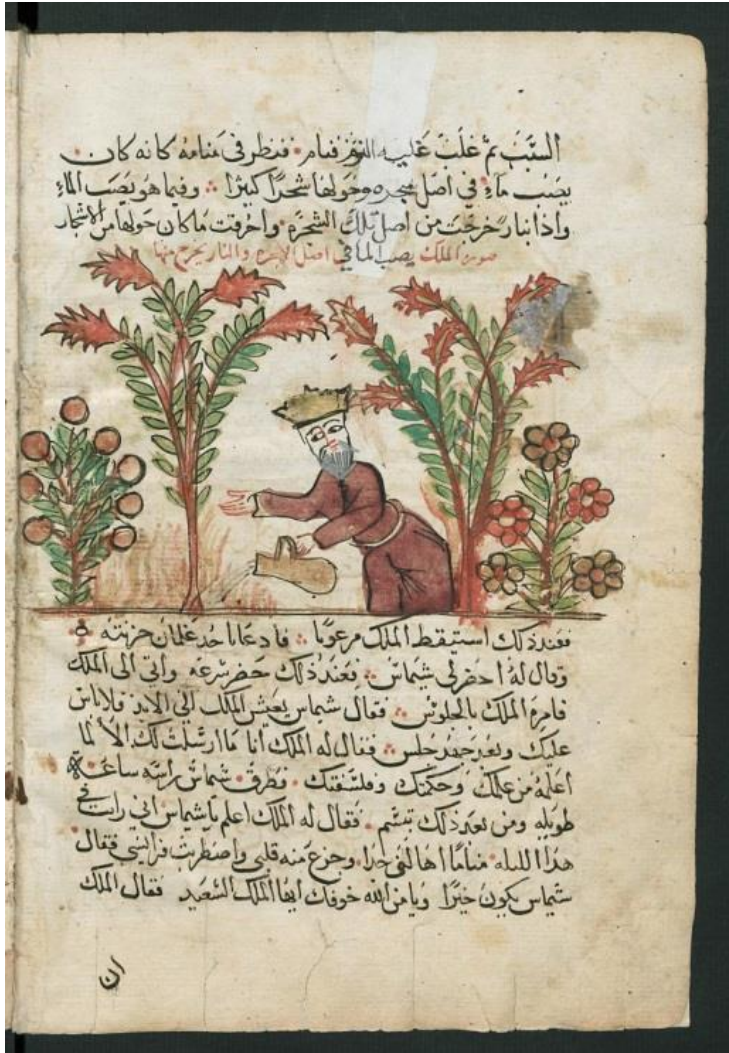 السَّبَبَ ثمّ غلَبَ عَليه النوم فنام • فنظر فى مَنامهُ كانه كان •
يصُب مآءٍ في اصل شجره وحولها شجرًا كثيرًا ؞ وفيما هو يصَب المآء
واذا بنار خرجَت من اصل تلك الشجَره • واحرقت مَا كان حَولها من الاشجار
صورة الملك يصب الما في اصل الشجره والنار يخرج منها
فعند ذلك استيقظ الملك مرعوبًا ؞ فادعا باحد غلمان خزنته
وقال لهُ احضر لي شيماس ؞ فعَند ذلك حَضر سُرعَه وأتى الى الملك
فامرهُ الملك بالجلوسْ ؞ فقال شيماس يعيش الملك الي الابد فلا باس
عليك وبعد جهد جلس ؞ فقال له الملك أنا مَا ارسَلت لك الاّ لما
أعلمهُ من علمك وحكمتك وفلسَفتك • فطرق شماسْ راسَه ساعَة
طويله ومن بعد ذلك تبسَّم • فقال له الملك اعلم يا شيماس اني رايت
هذا الليله منامًا اهالني جدا وجزع منه قلبي واضطربت فرايسي فقال
شيماس يكونُ خيرًا ويامن الله خوفك ايها الملك السَّعيد فقال الملك
ان